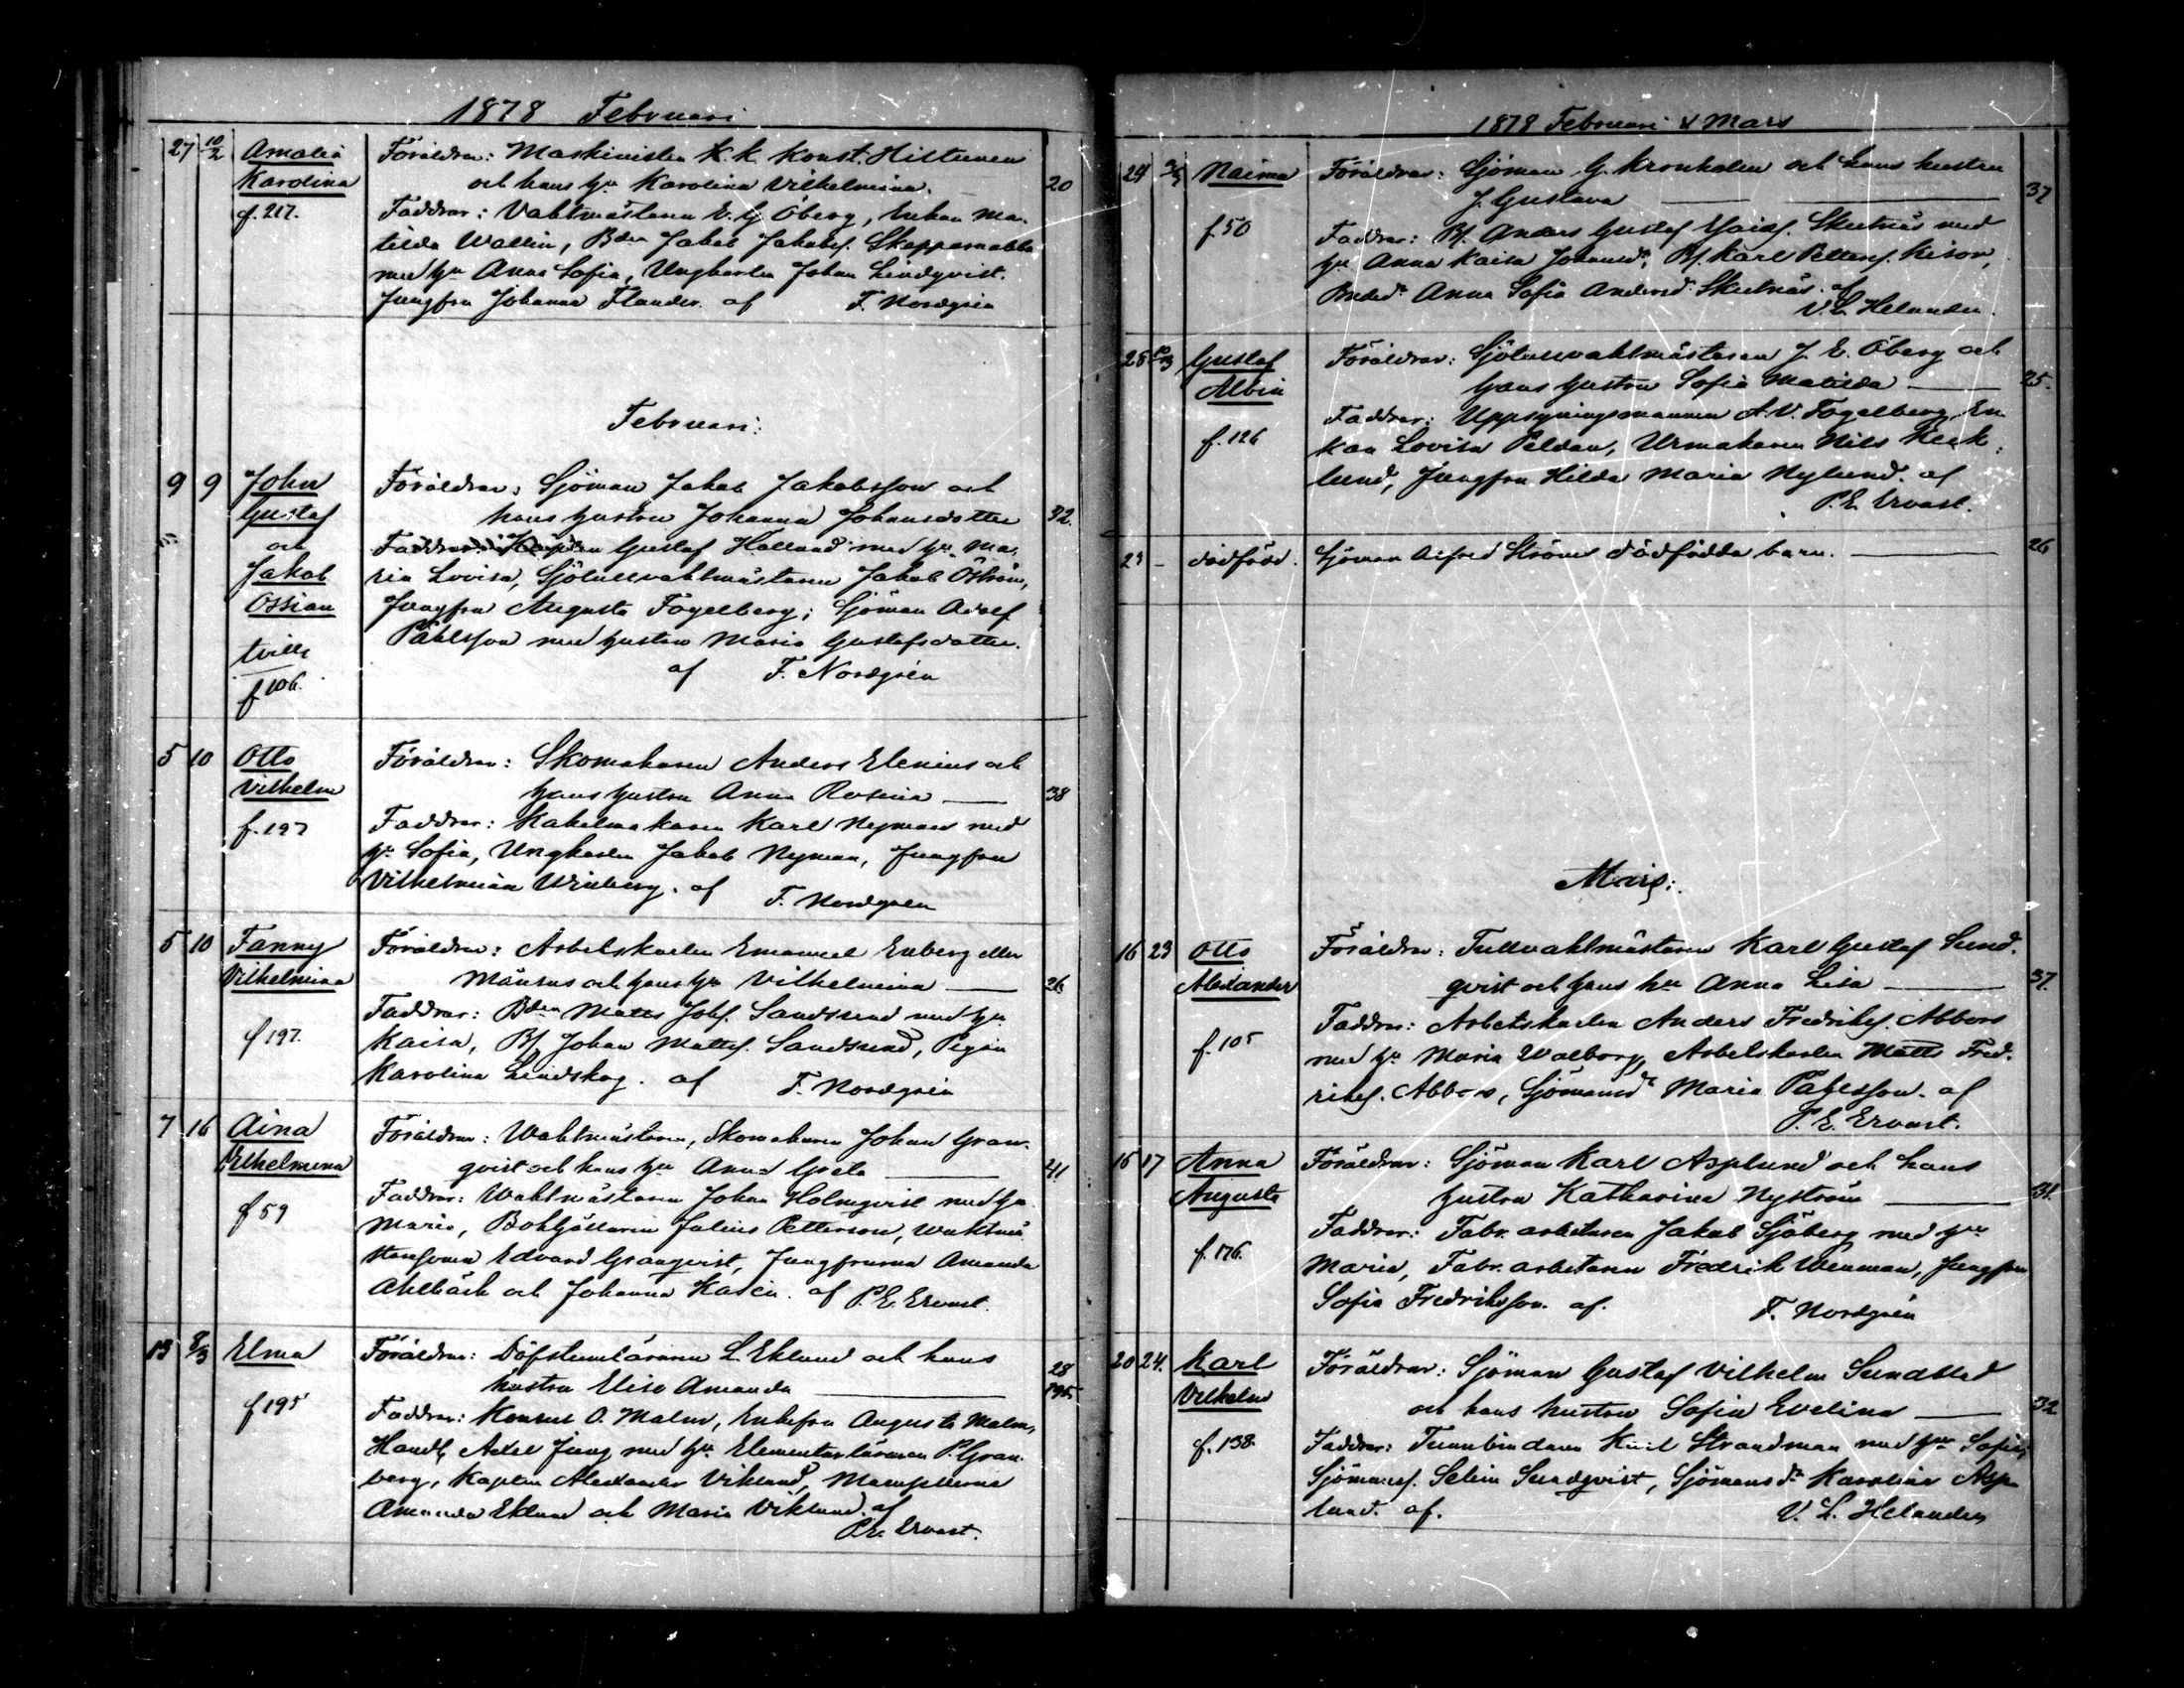 1878 Februari
27 10/2 Amalia Föräldrar: Maskinisten K. K. Konst. Hiltunen
Karolina och hans hu Karolina Vilhelmina. 20
f. 217. Faddrar: Vaktmästaren E. G. Öberg, Enkan Ma-
tilda Wallin, Bden Jakob Jakobss. Skepparnabba
med hu Anna Sofia, Ungkarlen Johan Lindqvist.
Jungfru Johanna Flander. af F. Nordgrén
Februari:
9 9 John Föräldrar: Sjöman Jakob Jakobsson och
Gustaf hans hustru Johanna Johansdotter 32.
och Faddrar: Kapten Gustaf Holland med hu Ma-
Jakob ria Lovisa, Sjötullvaktmästaren Jakob Öström,
Ossian Jungfru Augusta Fogelberg; Sjöman Adolf
Påhlsson med hustru Maria Gustafsdotter.
tvill. af F. Nordgrén
f 106.
5 10 Otto Föräldrar: Skomakaren Anders Elenius och
Vilhelm hans hustru Anna Rosina 38
f. 197 Faddrar: Kakelmakaren Karl Nyman med
hu Sofia, Ungkarlen Jakob Nyman, Jungfru
Vilhelmina Winberg. af F. Nordgrén
5 10 Fanny Föräldrar: Arbetskarlen Emanuel Enberg eller
Vilhelmina Månsus och hans hu Vilhelmina 26
f 197. Faddrar: Bden Matts Johs. Sandsund med hu
Kaisa, Bs. Johan Mattss. Sandsund, Pigan
Karolina Lindskog. af F. Nordgrén
7 16 Aina Föräldrar: Waktmästaren, Skomakaren Johan Gran-
Vilhelmina qvist och hans hu Anna Greta 41
f 59 Faddrar: Waktmästaren Johan Holmqvist med hu
Maria, Bokhållaren Julius Petterson, Waktmä-
Edvard Granqvist, Jungfrurna Amanda
Ahlbäck och Johanna Kasén. af P. E. Ervast.
13 8/3 Elma Föräldrar: Döfstumläraren L. Eklund och hans 28
hustru Elise Amanda 195
f 195 Faddrar: Konsul O. Malm, Enkefru Augusta Malm,
Handl. Axel Jung med hu Elementarläraren P. Gran-
berg, Kapten Alexander Viklund, Mamsellerna
Amanda Eklund och Maria Viklund. af
P. E. Ervast.
1878 Februari & Mars
24 3/3 Naima Föräldrar: Sjöman G. Kronholm och hans hustru
J. Gustava 37
f. 50 Faddrar: Bs. Anders Gustaf Skutnäs med
hu Anna Kaisa Johansdr, Bs. Karl Petterss. Kison,
Bondedr Anna Sofia Andersdr Skutnäs. af
V. L. Helander.
28 10/3 Gustaf Föräldrar: Sjötullvaktmästaren J. E. Öberg och
Albin hans hustru Sofia Matilda 25.
Faddrar: Uppsyningsmannen A. V. Fogelberg, En-
f. 126 kan Lovisa Peldan, Urmakaren Nils Heck-
lund, Jungfru Hilda Maria Nylund. af
P. E. Ervast.
23 - dödfödd. Sjöman Alfred Ströms dödfödda barn. 26
Mars:
16 23 Otto Föräldrar: Tullvaktmästaren Karl Gustaf Sund-
Alexander qvist och hans hu Anna Lisa 37.
f. 105 Faddrar: Arbetskarlen Anders Fredrikss. Abbors
med hu Maria Walborg, Arbetskarlen Matts Fred-
rikss. Abbors, Sjömansdr Maria Påhlsson. af
P. E. Ervast.
15 17 Anna Föräldrar: Sjöman Karl Asplund och hans
Augusta hustru Katharina Nyström 31.
Faddrar: Fabr. arbetaren Jakob Sjöberg med hu
f. 176. Maria, Fabr. arbetaren Fredrik Wenman, Jungfru
Sofia Fredriksson. af. F. Nordgrén
20 24. Karl Föräldrar: Sjöman Gustaf Vilhelm Sundblad
Vilhelm och hans hustru Sofia Evelina 32
f. 138. Faddrar: Tunnbindaren Karl Strandman med hu Sofia,
Sjömanss. Selim Sundqvist, Sjömansdr Karolina Asp-
lund. af. V. L. Helander